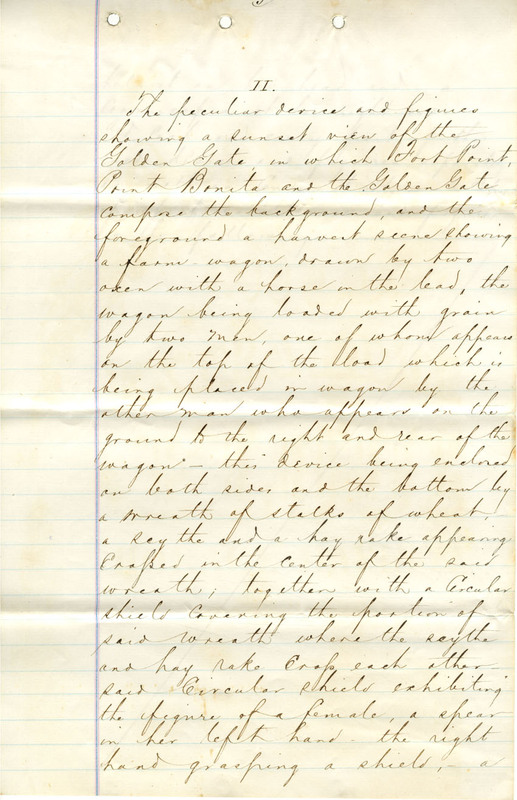 II.
The peculiar device and figures
showing a sunset view of the
Golden Gate in which Fort Point,
Point Bonita and the Golden Gate
compose the background, and the
foreground a harvest scene showing
a farm wagon, drawn by two
oxen with a horse in the lead, the
wagon being loaded with grain
by two men, one of whom appears
on the top of the load which is
being placed on wagon by the
other man who appears on the
ground to the right and rear of the
wagon – this device being enclosed
on both sides and the bottom by
a wreath of stalks of wheat,
a scythe and a hay rake appearing
Crossed in the center of the said
wreath; together with a Circular
shield Covering the portion of
said wreath where the scythe
and hay rake Cross each other –
said Circular shield exhibiting
the figure of a female, a spear
in her left hand – the right
hand grasping a shield, – a